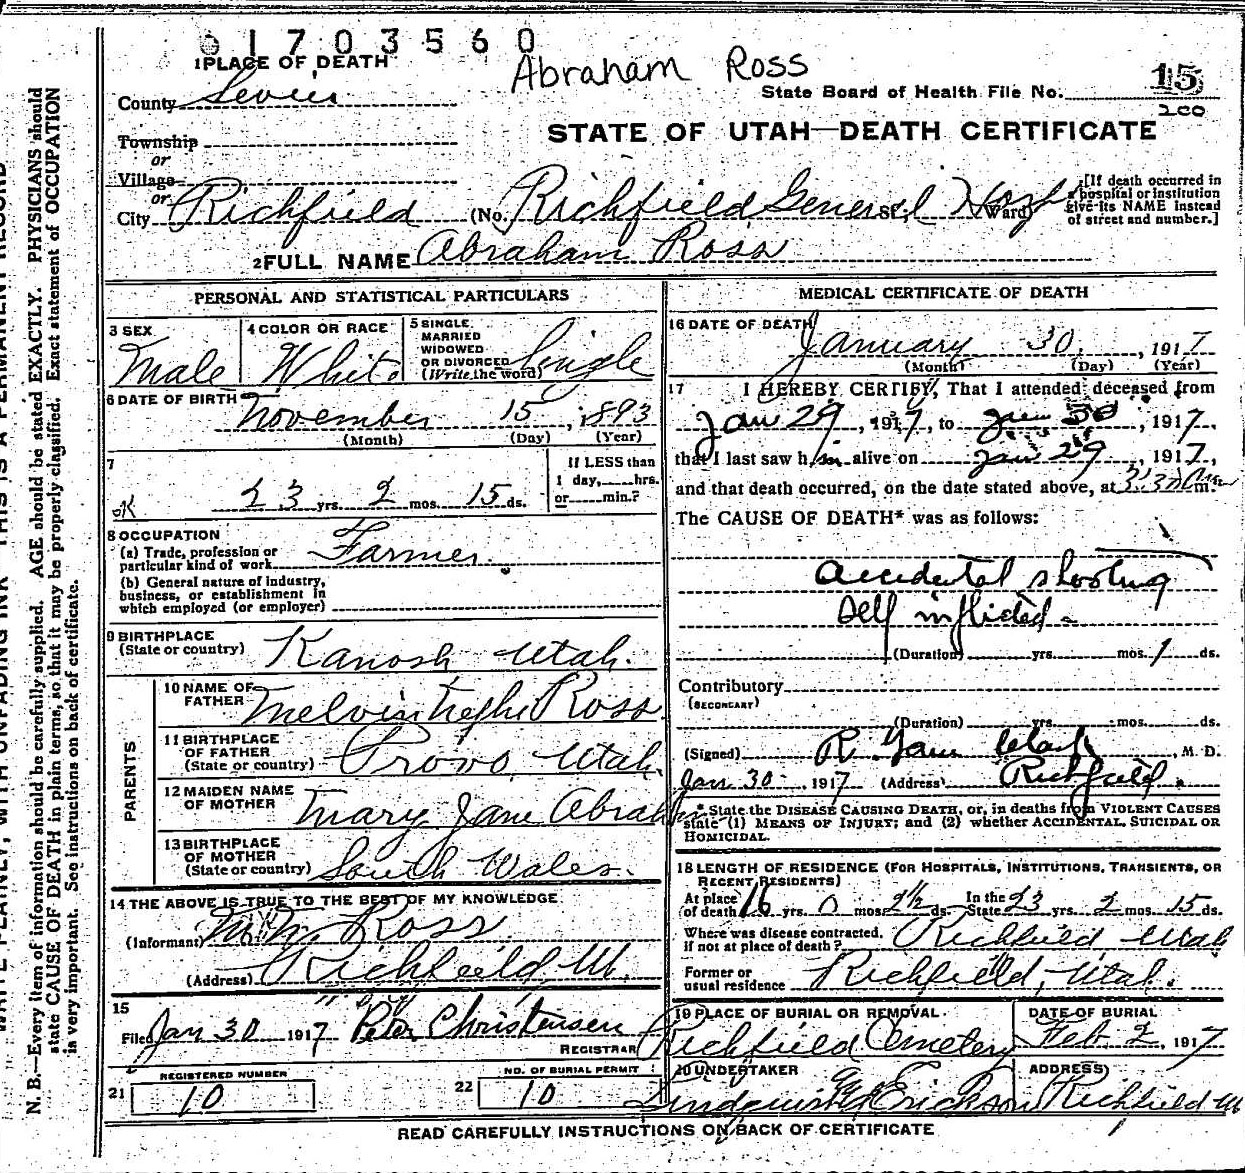 01703560
Abraham Ross
1 PLACE OF DEATH
State Board of Health File No. 15
200
County Sevier
STATE OF UTAH—DEATH CERTIFICATE
Township
or
Village
or
City Richfield (No. Richfield General Hosp St.; Ward)
[If death occurred in a hospital or institution give its NAME instead of street and number.]
2 FULL NAME Abraham Ross
PERSONAL AND STATISTICAL PARTICULARS
3 SEX Male
4 COLOR OR RACE White
5 SINGLE, MARRIED WIDOWED OR DIVORCED (Write the word) Single
6 DATE OF BIRTH November 15, 1893
(Month) (Day) (Year)
7
OK 23 yrs. 2 mos. 15 ds.
If LESS than 1 day, hrs. or min.?
8 OCCUPATION
(a) Trade, profession or particular kind of work Farmer.
(b) General nature of industry, business, or establishment in which employed (or employer)
9 BIRTHPLACE
(State or country) Kanosh Utah.
PARENTS
10 NAME OF FATHER Melvin Ross
11 BIRTHPLACE OF FATHER
(State or country) Provo, Utah.
12 MAIDEN NAME OF MOTHER Mary Jane Abraham
13 BIRTHPLACE OF MOTHER
(State or country) South Wales.
14 THE ABOVE IS TRUE TO THE BEST OF MY KNOWLEDGE.
(Informant) Ross
(Address) Richfield Ut.
15
Filed Jan 30 1917 Peter Christensen
REGISTRAR
21 REGISTERED NUMBER 10
22 NO. OF BURIAL PERMIT 10
MEDICAL CERTIFICATE OF DEATH
16 DATE OF DEATH January 30, 1917
(Month) (Day) (Year)
17 I HEREBY CERTIFY, That I attended deceased from
Jan 29, 1917, to Jan 30, 1917,
that I last saw him alive on Jan 29, 1917,
and that death occurred, on the date stated above, at 3:30 A m.
The CAUSE OF DEATH* was as follows:
Accidental shooting
Self inflicted
(Duration) yrs. mos. 1 ds.
Contributory
(SECONDARY)
(Duration) yrs. mos. ds.
(Signed) R. , M. D.
Jan. 30, 1917 (Address) Richfield.
*State the DISEASE CAUSING DEATH, or, in deaths from VIOLENT CAUSES
state (1) MEANS OF INJURY; and (2) whether ACCIDENTAL, SUICIDAL OR
HOMICIDAL.
18 LENGTH OF RESIDENCE (FOR HOSPITALS, INSTITUTIONS, TRANSIENTS, OR
RECENT RESIDENTS)
At place of death 16 yrs. 0 mos. 2½ ds. In the State 23 yrs. 2 mos. 15 ds.
Where was disease contracted, if not at place of death? Richfield Utah
Former or usual residence Richfield, Utah.
19 PLACE OF BURIAL OR REMOVAL Richfield Cemetery
DATE OF BURIAL Feb. 2, 1917
20 UNDERTAKER Erickson
ADDRESS Richfield Ut
READ CAREFULLY INSTRUCTIONS ON BACK OF CERTIFICATE
WRITE PLAINLY, WITH UNFADING INK—THIS IS A PERMANENT RECORD
N. B.—Every item of information should be carefully supplied. AGE should be stated EXACTLY. PHYSICIANS should
state CAUSE OF DEATH in plain terms, so that it may be properly classified. Exact statement of OCCUPATION
is very important. See instructions on back of certificate.